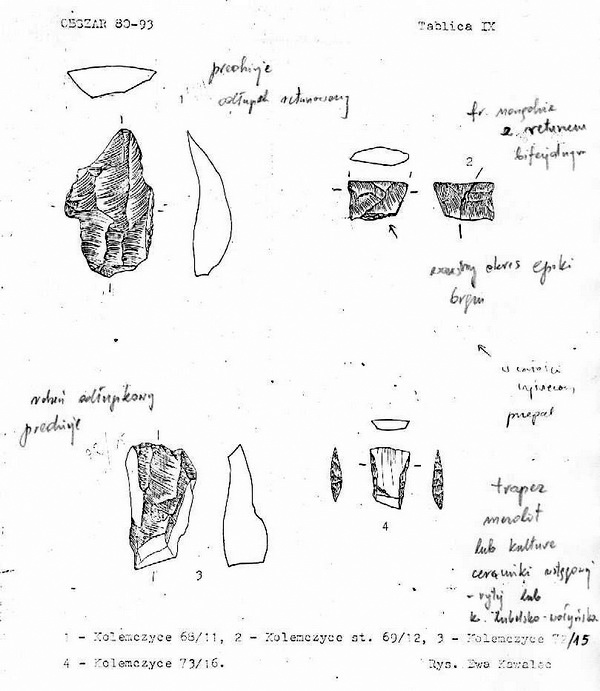 OBSZAR 80-93
Tablica IX
1
odłupek retuszowany
fr. narzędzia
z retuszem
bifacjalnym
2
wczesny okres epoki
brązu
rdzeń odłupkowy
przepał
4
trapez
mezolit
lub kultura
ceramiki wstęgowej
- rytej lub
k. lubelsko-wołyńska
3
1 - Kolemczyce 68/11, 2 - Kolemczyce st. 69/12, 3 - Kolemczyce 72/15
4 - Kolemczyce 73/16.
Rys. Ewa Kawalec